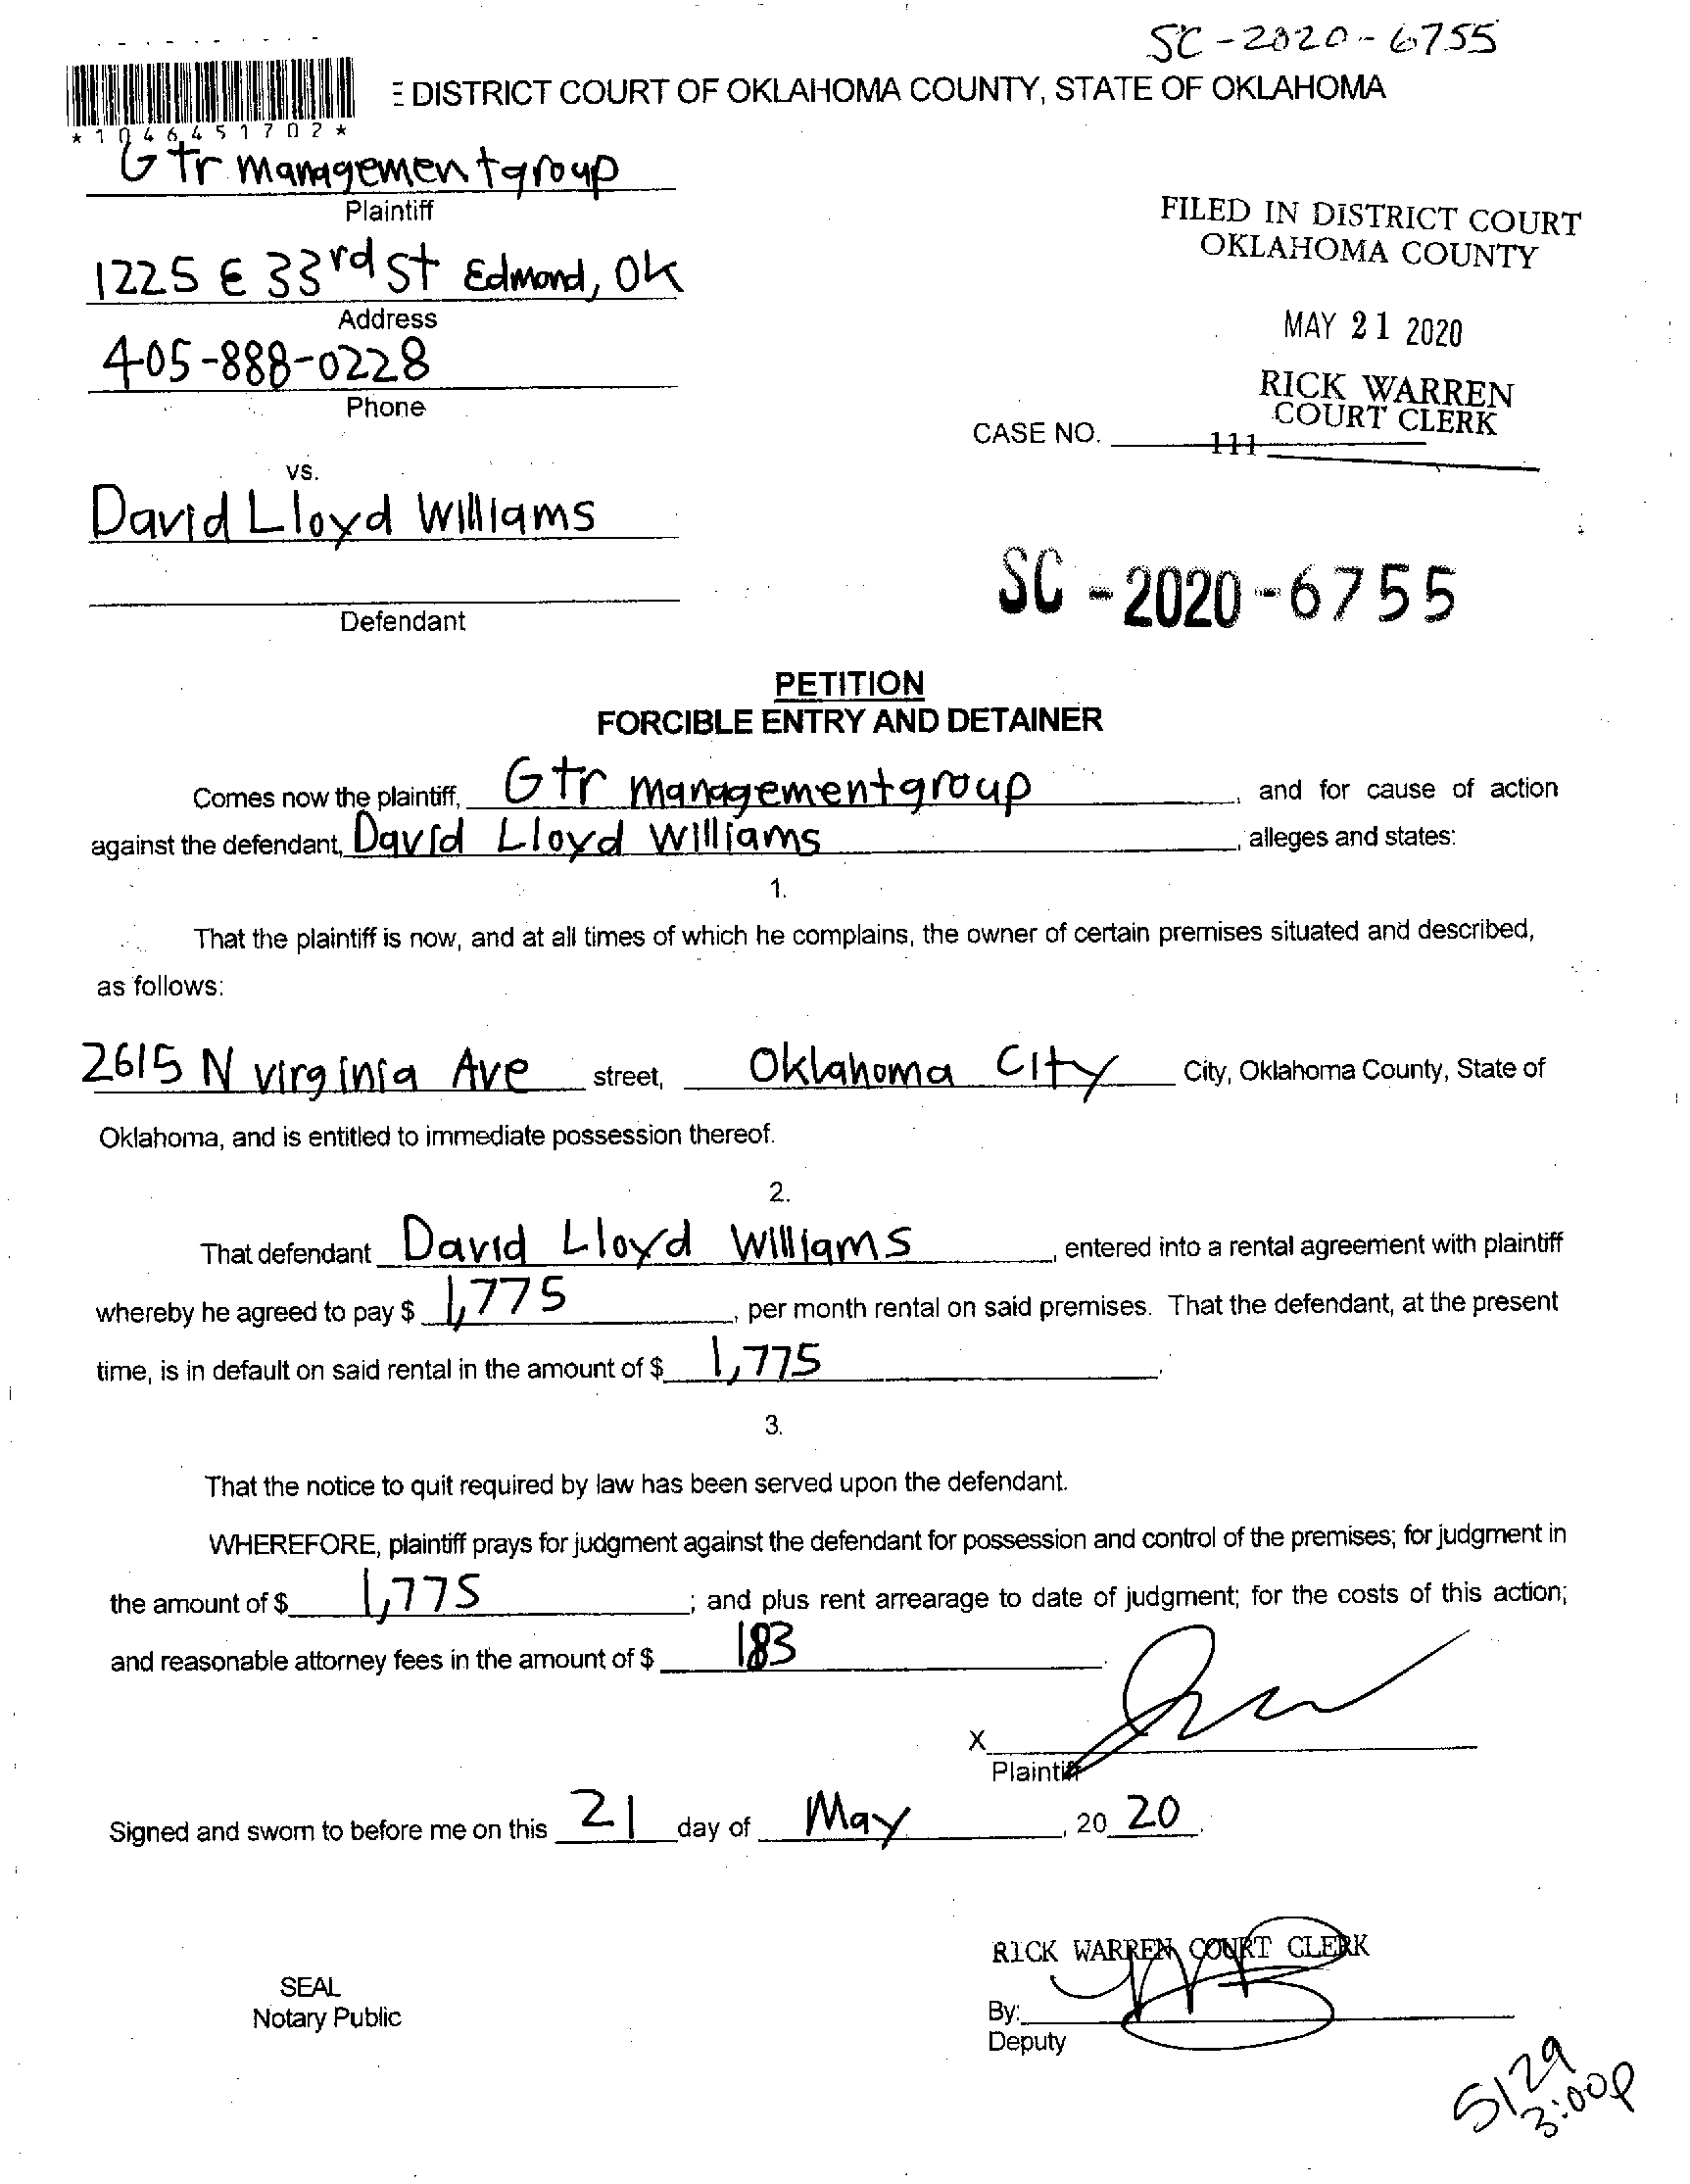 SC-2020-6755
E DISTRICT COURT OF OKLAHOMA COUNTY, STATE OF OKLAHOMA
*1046451702*
Gtr managementgroup
Plaintiff
1225 E 33rd St Edmond, Ok
Address
405-888-0228
Phone
FILED IN DISTRICT COURT
OKLAHOMA COUNTY
MAY 21 2020
RICK WARREN
COURT CLERK
CASE NO. 111
vs.
David Lloyd Williams
Defendant
SC-2020-6755
PETITION
FORCIBLE ENTRY AND DETAINER
Comes now the plaintiff, Gtr managementgroup, and for cause of action
against the defendant, David Lloyd Williams, alleges and states:
1.
That the plaintiff is now, and at all times of which he complains, the owner of certain premises situated and described,
as follows:
2615 N virginia Ave street, Oklahoma City City, Oklahoma County, State of
Oklahoma, and is entitled to immediate possession thereof.
2.
That defendant David Lloyd Williams, entered into a rental agreement with plaintiff
whereby he agreed to pay $ 1,775, per month rental on said premises. That the defendant, at the present
time, is in default on said rental in the amount of $ 1,775.
3.
That the notice to quit required by law has been served upon the defendant.
WHEREFORE, plaintiff prays for judgment against the defendant for possession and control of the premises; for judgment in
the amount of $ 1,775; and plus rent arrearage to date of judgment; for the costs of this action;
and reasonable attorney fees in the amount of $ 183.
X
Plaintiff
Signed and sworn to before me on this 21 day of May, 20 20.
RICK WARREN COURT CLERK
SEAL
Notary Public
By:
Deputy
5/29
3:00p